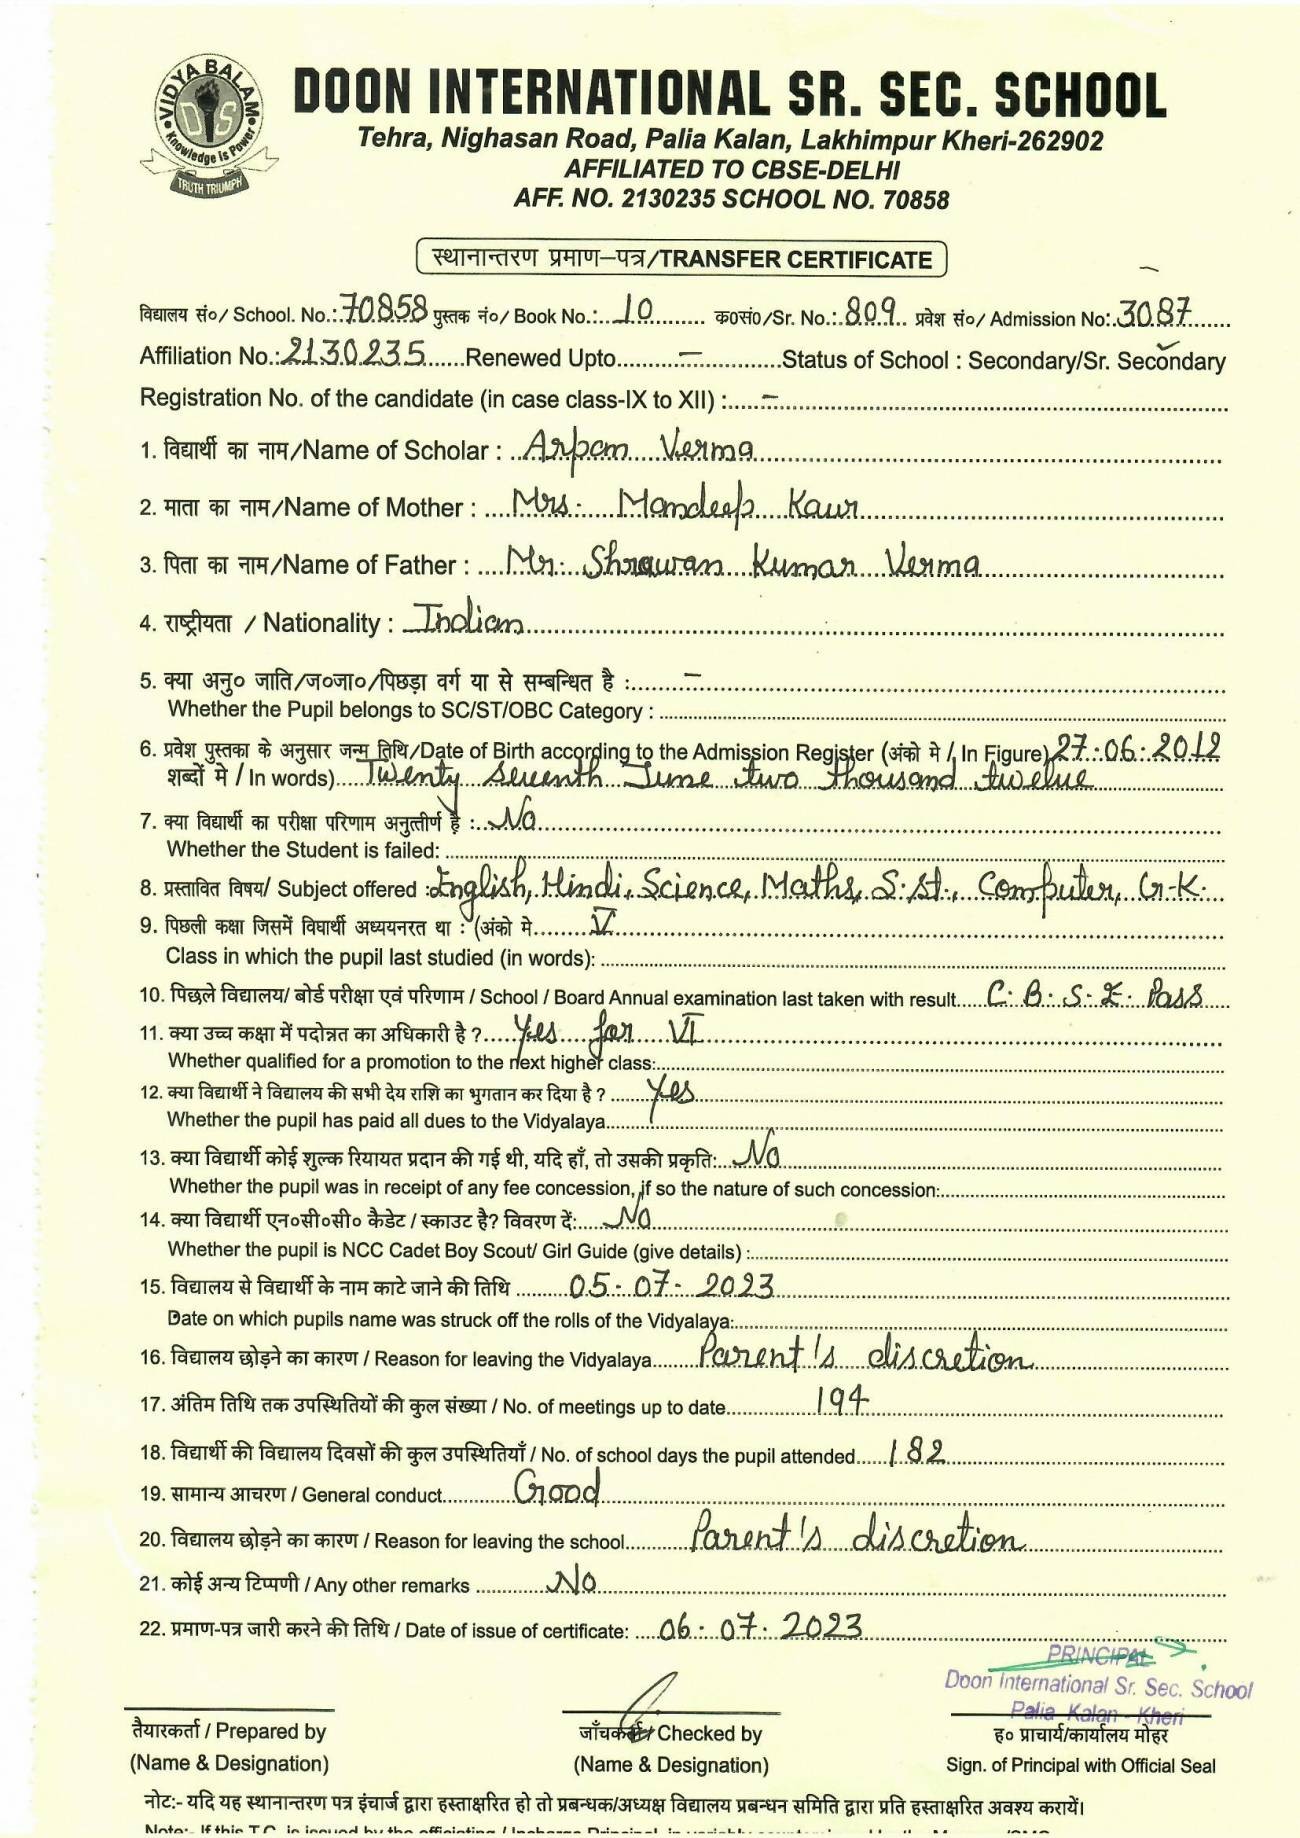 VIDYA BALAM
DIS
Knowledge is Power
TRUTH TRIUMPH
DOON INTERNATIONAL SR. SEC. SCHOOL
Tehra, Nighasan Road, Palia Kalan, Lakhimpur Kheri-262902
AFFILIATED TO CBSE-DELHI
AFF. NO. 2130235 SCHOOL NO. 70858
स्थानान्तरण प्रमाण–पत्र/TRANSFER CERTIFICATE
विद्यालय सं०/ School. No.:70858 पुस्तक नं०/ Book No.: 10 क०सं०/Sr. No.: 809 प्रवेश सं०/ Admission No:.3087
Affiliation No.:2130235 Renewed Upto – Status of School : Secondary/Sr. Secondary
Registration No. of the candidate (in case class-IX to XII) : –
1. विद्यार्थी का नाम/Name of Scholar : Arpan Verma
2. माता का नाम/Name of Mother : Mrs. Mandeep Kaur
3. पिता का नाम/Name of Father : Mr. Shrawan Kumar Verma
4. राष्ट्रीयता / Nationality : Indian
5. क्या अनु० जाति/ज०जा०/पिछड़ा वर्ग या से सम्बन्धित है : –
Whether the Pupil belongs to SC/ST/OBC Category :
6. प्रवेश पुस्तका के अनुसार जन्म तिथि/Date of Birth according to the Admission Register (अंको मे / In Figure) 27.06.2012
शब्दों मे / In words) Twenty Seventh June two thousand twelve
7. क्या विद्यार्थी का परीक्षा परिणाम अनुत्तीर्ण है : No
Whether the Student is failed:
8. प्रस्तावित विषय/ Subject offered :English, Hindi, Science, Maths, S.St., Computer, G.K.
9. पिछली कक्षा जिसमें विघार्थी अध्ययनरत था : (अंको मे V
Class in which the pupil last studied (in words):
10. पिछले विद्यालय/ बोर्ड परीक्षा एवं परिणाम / School / Board Annual examination last taken with result C.B.S.E. Pass
11. क्या उच्च कक्षा में पदोन्नत का अधिकारी है ? Yes for VI
Whether qualified for a promotion to the next higher class:
12. क्या विद्यार्थी ने विद्यालय की सभी देय राशि का भुगतान कर दिया है ? Yes
Whether the pupil has paid all dues to the Vidyalaya
13. क्या विद्यार्थी कोई शुल्क रियायत प्रदान की गई थी, यदि हाँ, तो उसकी प्रकृति: No
Whether the pupil was in receipt of any fee concession, if so the nature of such concession:
14. क्या विद्यार्थी एन०सी०सी० कैडेट / स्काउट है? विवरण दें: No
Whether the pupil is NCC Cadet Boy Scout/ Girl Guide (give details) :
15. विद्यालय से विद्यार्थी के नाम काटे जाने की तिथि 05-07-2023
Date on which pupils name was struck off the rolls of the Vidyalaya:
16. विद्यालय छोड़ने का कारण / Reason for leaving the Vidyalaya Parent's discretion
17. अंतिम तिथि तक उपस्थितियों की कुल संख्या / No. of meetings up to date 194
18. विद्यार्थी की विद्यालय दिवसों की कुल उपस्थितियाँ / No. of school days the pupil attended 182
19. सामान्य आचरण / General conduct Good
20. विद्यालय छोड़ने का कारण / Reason for leaving the school Parent's discretion
21. कोई अन्य टिप्पणी / Any other remarks No
22. प्रमाण-पत्र जारी करने की तिथि / Date of issue of certificate: 06.07.2023
PRINCIPAL
Doon International Sr. Sec. School
Palia Kalan - Kheri
तैयारकर्ता / Prepared by जाँचकर्ता / Checked by ह० प्राचार्य/कार्यालय मोहर
(Name & Designation) (Name & Designation) Sign. of Principal with Official Seal
नोट:- यदि यह स्थानान्तरण पत्र इंचार्ज द्वारा हस्ताक्षरित हो तो प्रबन्धक/अध्यक्ष विद्यालय प्रबन्धन समिति द्वारा प्रति हस्ताक्षरित अवश्य करायें।
Note:- If this T.C. is issued by the officiating / Incharge Principal,